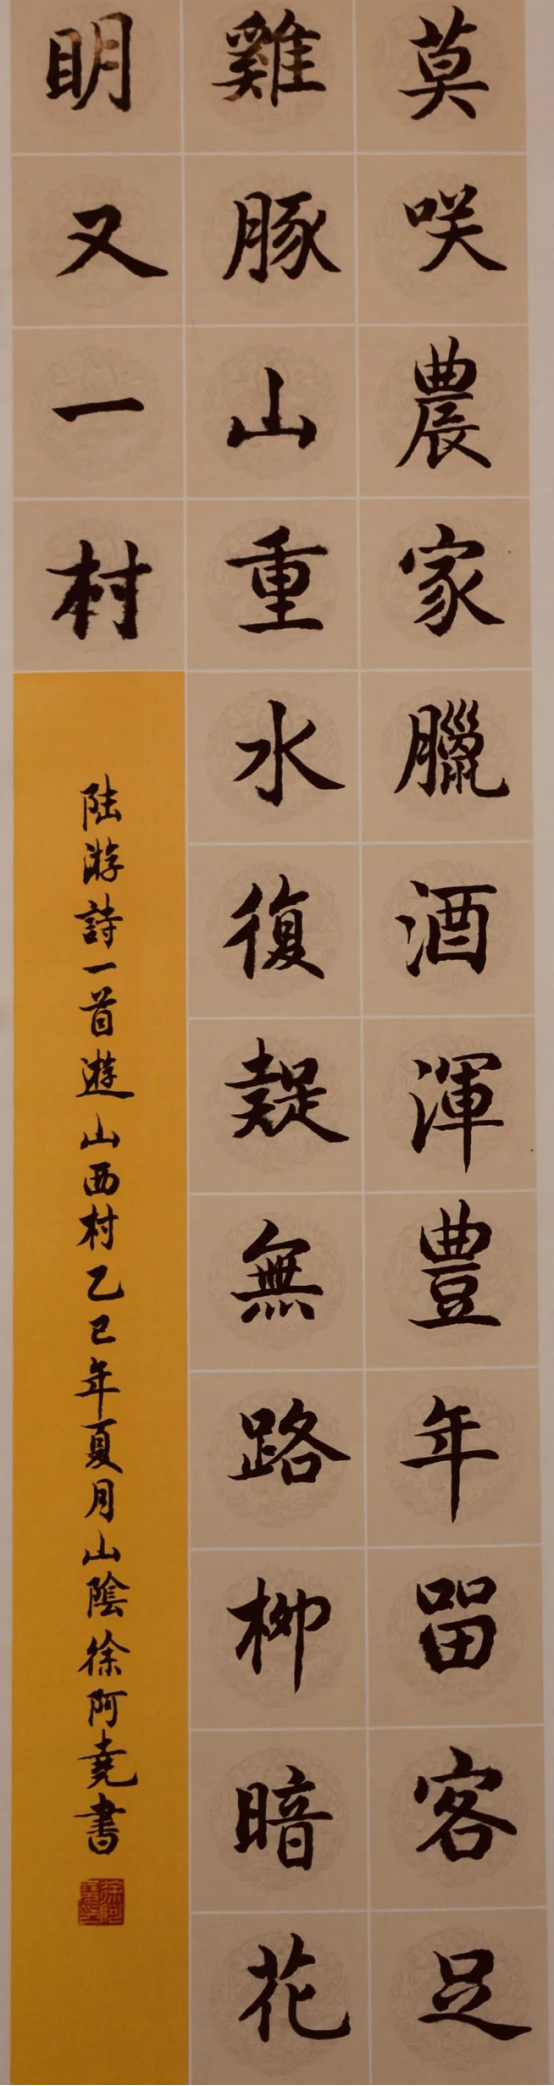 莫咲農家臘酒渾豊年畱客足
雞豚山重水復疑無路柳暗花
明又一村
陸游詩一首遊山西村乙巳年夏月山陰徐阿堯書